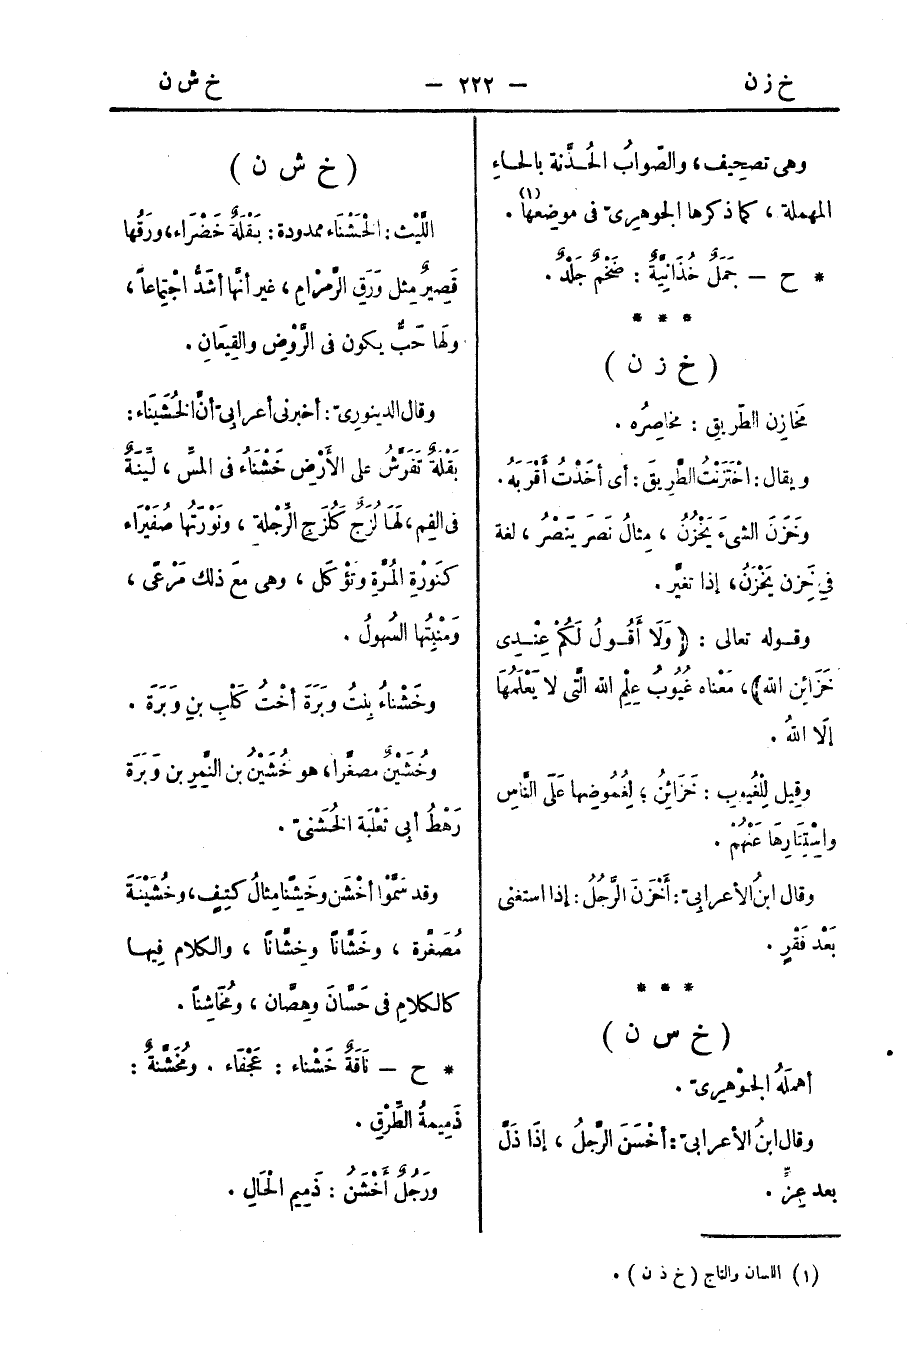 خ زن
— ٢٢٢ —
خ ش ن
وهى تصحيف، والصّوابُ الحُـذَّنة بالحاءِ
المهملة، كما ذكرها الجوهرىّ فى موضعها(١).
* ح — جَمَلٌ خُذَانِيَّةٌ : ضَخْمٌ جَلْدٌ .
* * *
( خ ز ن )
مَخَازِن الطّريقِ : مخاصِرُه .
ويقال : اخْتَزَنْتُ الطَّرِيقَ : أى أخَذْتُ أقْرَبَهُ.
وخَزَنَ الشىءَ يَخْزُنُ ، مِثالُ نَصَرَ يَنصُرُ ، لغة
فى خَزِن يَخْزَنُ، إذا تغيَّر .
وقـوله تعالى : ﴿ وَلَا أَقُولُ لَكُمْ عِنْـدِى
خَزَائِن الله﴾، مَعْناه غُيُوبُ عِلْمِ الله الَّتى لا يَعْلَمُها
إلّا اللهُ .
وقِيل لِلْغُيوبِ : خَزَائنُ ؛ لِغُمُوضِها عَلَى النَّاسِ
واسْتِتَارِهَا عَنْهُمْ .
وقال ابنُ الأعرابىّ : أَخْزَنَ الرَّجُلُ : إذا استغنى
بَعْد فَقْرٍ .
* * *
( خ س ن )
أهملَهُ الجوْهرىّ .
وقال ابنُ الأعرابىّ : أخْسَنَ الرّجلُ ، إذَا ذَلَّ
بعد عِزٍّ .
(١) اللسان والتاج ( خ ذ ن ) .
( خ ش ن )
اللَّيْث : الخَشْنَاء ممدودة : بَقْلَةٌ خَضْرَاء، ورَقُها
قَصِيرٌ مِثل وَرَقِ الرَّمْرَامِ، غير أنَّها أشَدُّ اجْتِماعاً،
ولَها حَبٌّ يكون فى الرَّوْضِ والقِيعَانِ .
وقال الدينورىّ : أخبرنى أعرابىّ أنَّ الخُشَيْنَاء :
بَقْلَةٌ تَفَرَّشُ على الأَرْضِ خَشْنَاءُ فى المسِّ ، لَيِّنَةٌ
فى الفمِ، لَهَا لُزَجٌ كَلُزَجِ الرِّجْلة ، ونَوْرَتُها صُفَيْرَاء
كنَوْرةِ المُرَّةِ وتُؤكل ، وهى مَعَ ذلك مَرْعًى ،
ومَنْبِتُها السُهولُ .
وخَشْناءُ بِنتُ وبَرَةَ أختُ كَلْبِ بنِ وَبَرَةَ .
وخُشَيْنٌ مصغّرا، هو خُشَيْنُ بن النَّمِرِ بن وَبَرَة
رَهْطُ أبى ثَعْلَبَة الخُشَنىّ .
وقد سَمَّوْا أخْشَن وخَشِنًا مِثالُ كتِيفٍ، وخُشَيْنَـة
مُصَغَّرة ، وخَشَّاناً وخِشَّاناً ، والكلام فِيهـا
كالكلامِ فى حَسَّانَ وهِصَّان ، ومُخَاشِناً .
* ح — نَاقَةٌ خَشْناء : عَجْفَاء . ومُخَشَّنَةٌ :
ذَمِيمةُ الطِّرْقِ .
ورَجُلٌ أَخْشَنُ : ذَمِيم الْحَالِ .